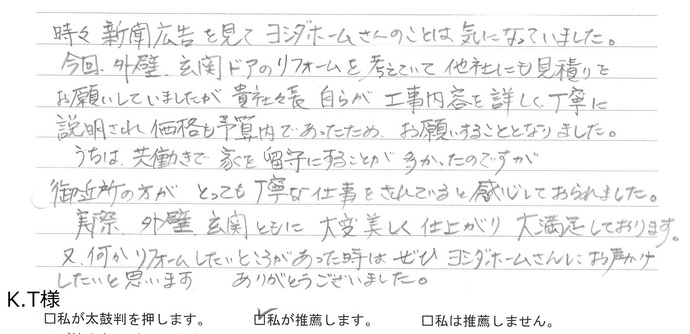 時々 新聞広告を見て ヨシダホームさんのことは 気になっていました。
今回、外壁、玄関ドアのリフォームを 考えていて 他社にも見積りを
お願いしていましたが 貴社社長 自らが 工事内容を 詳しく、丁寧に
説明され、価格も予算内であったため、お願いすることとなりました。
うちは、共働きで 家を 留守にすることが 多かったのですが
御近所の方が とっても 丁寧な 仕事をされていると 感心しておられました。
実際、外壁、玄関ともに 大変美しく 仕上がり 大満足しております。
又、何か リフォームしたいところがあった時は ぜひ ヨシダホームさんに お声かけ
したいと思います ありがとうございました。
K.T様
□私が太鼓判を押します。 ☑私が推薦します。 □私は推薦しません。